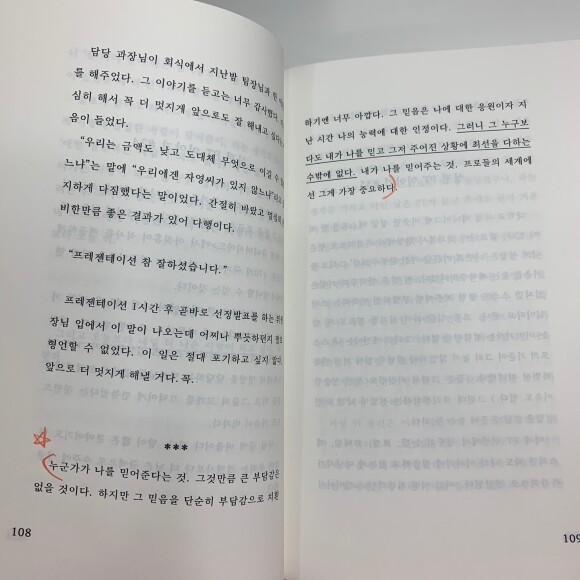 담당 과장님이 회식에서 지난밤 팀장님과
를 해주었다. 그 이야기를 듣고는 너무 감사했다.
심히 해서 꼭 더 멋지게 앞으로도 잘 해내고
음이 들었다.
"우리는 금액도 낮고 도대체 무엇으로 이길 수
느냐"는 말에 "우리에겐 자영씨가 있지 않느냐"
지하게 다짐했다는 말이었다. 간절히 바랐고
비한만큼 좋은 결과가 있어 다행이다.
"프레젠테이션 참 잘하셨습니다."
프레젠테이션 1시간 후 곧바로 선정발표를 하는
장님 입에서 이 말이 나오는데 어찌나 뿌듯하던지
형언할 수 없었다. 이 일은 절대 포기하고 싶지
앞으로 더 멋지게 해낼 거다. 꼭.
***
누군가가 나를 믿어준다는 것. 그것만큼 큰 부담감은
없을 것이다. 하지만 그 믿음을 단순히 부담감으로 치환
108
하기엔 너무 아깝다. 그 믿음은 나에 대한 응원이자 지
난 시간 나의 능력에 대한 인정이다. 그러니 그 누구보
다도 내가 나를 믿고 그저 주어진 상황에 최선을 다하는
수밖에 없다. 내가 나를 믿어주는 것. 프로들의 세계에
선 그게 가장 중요하다.
109